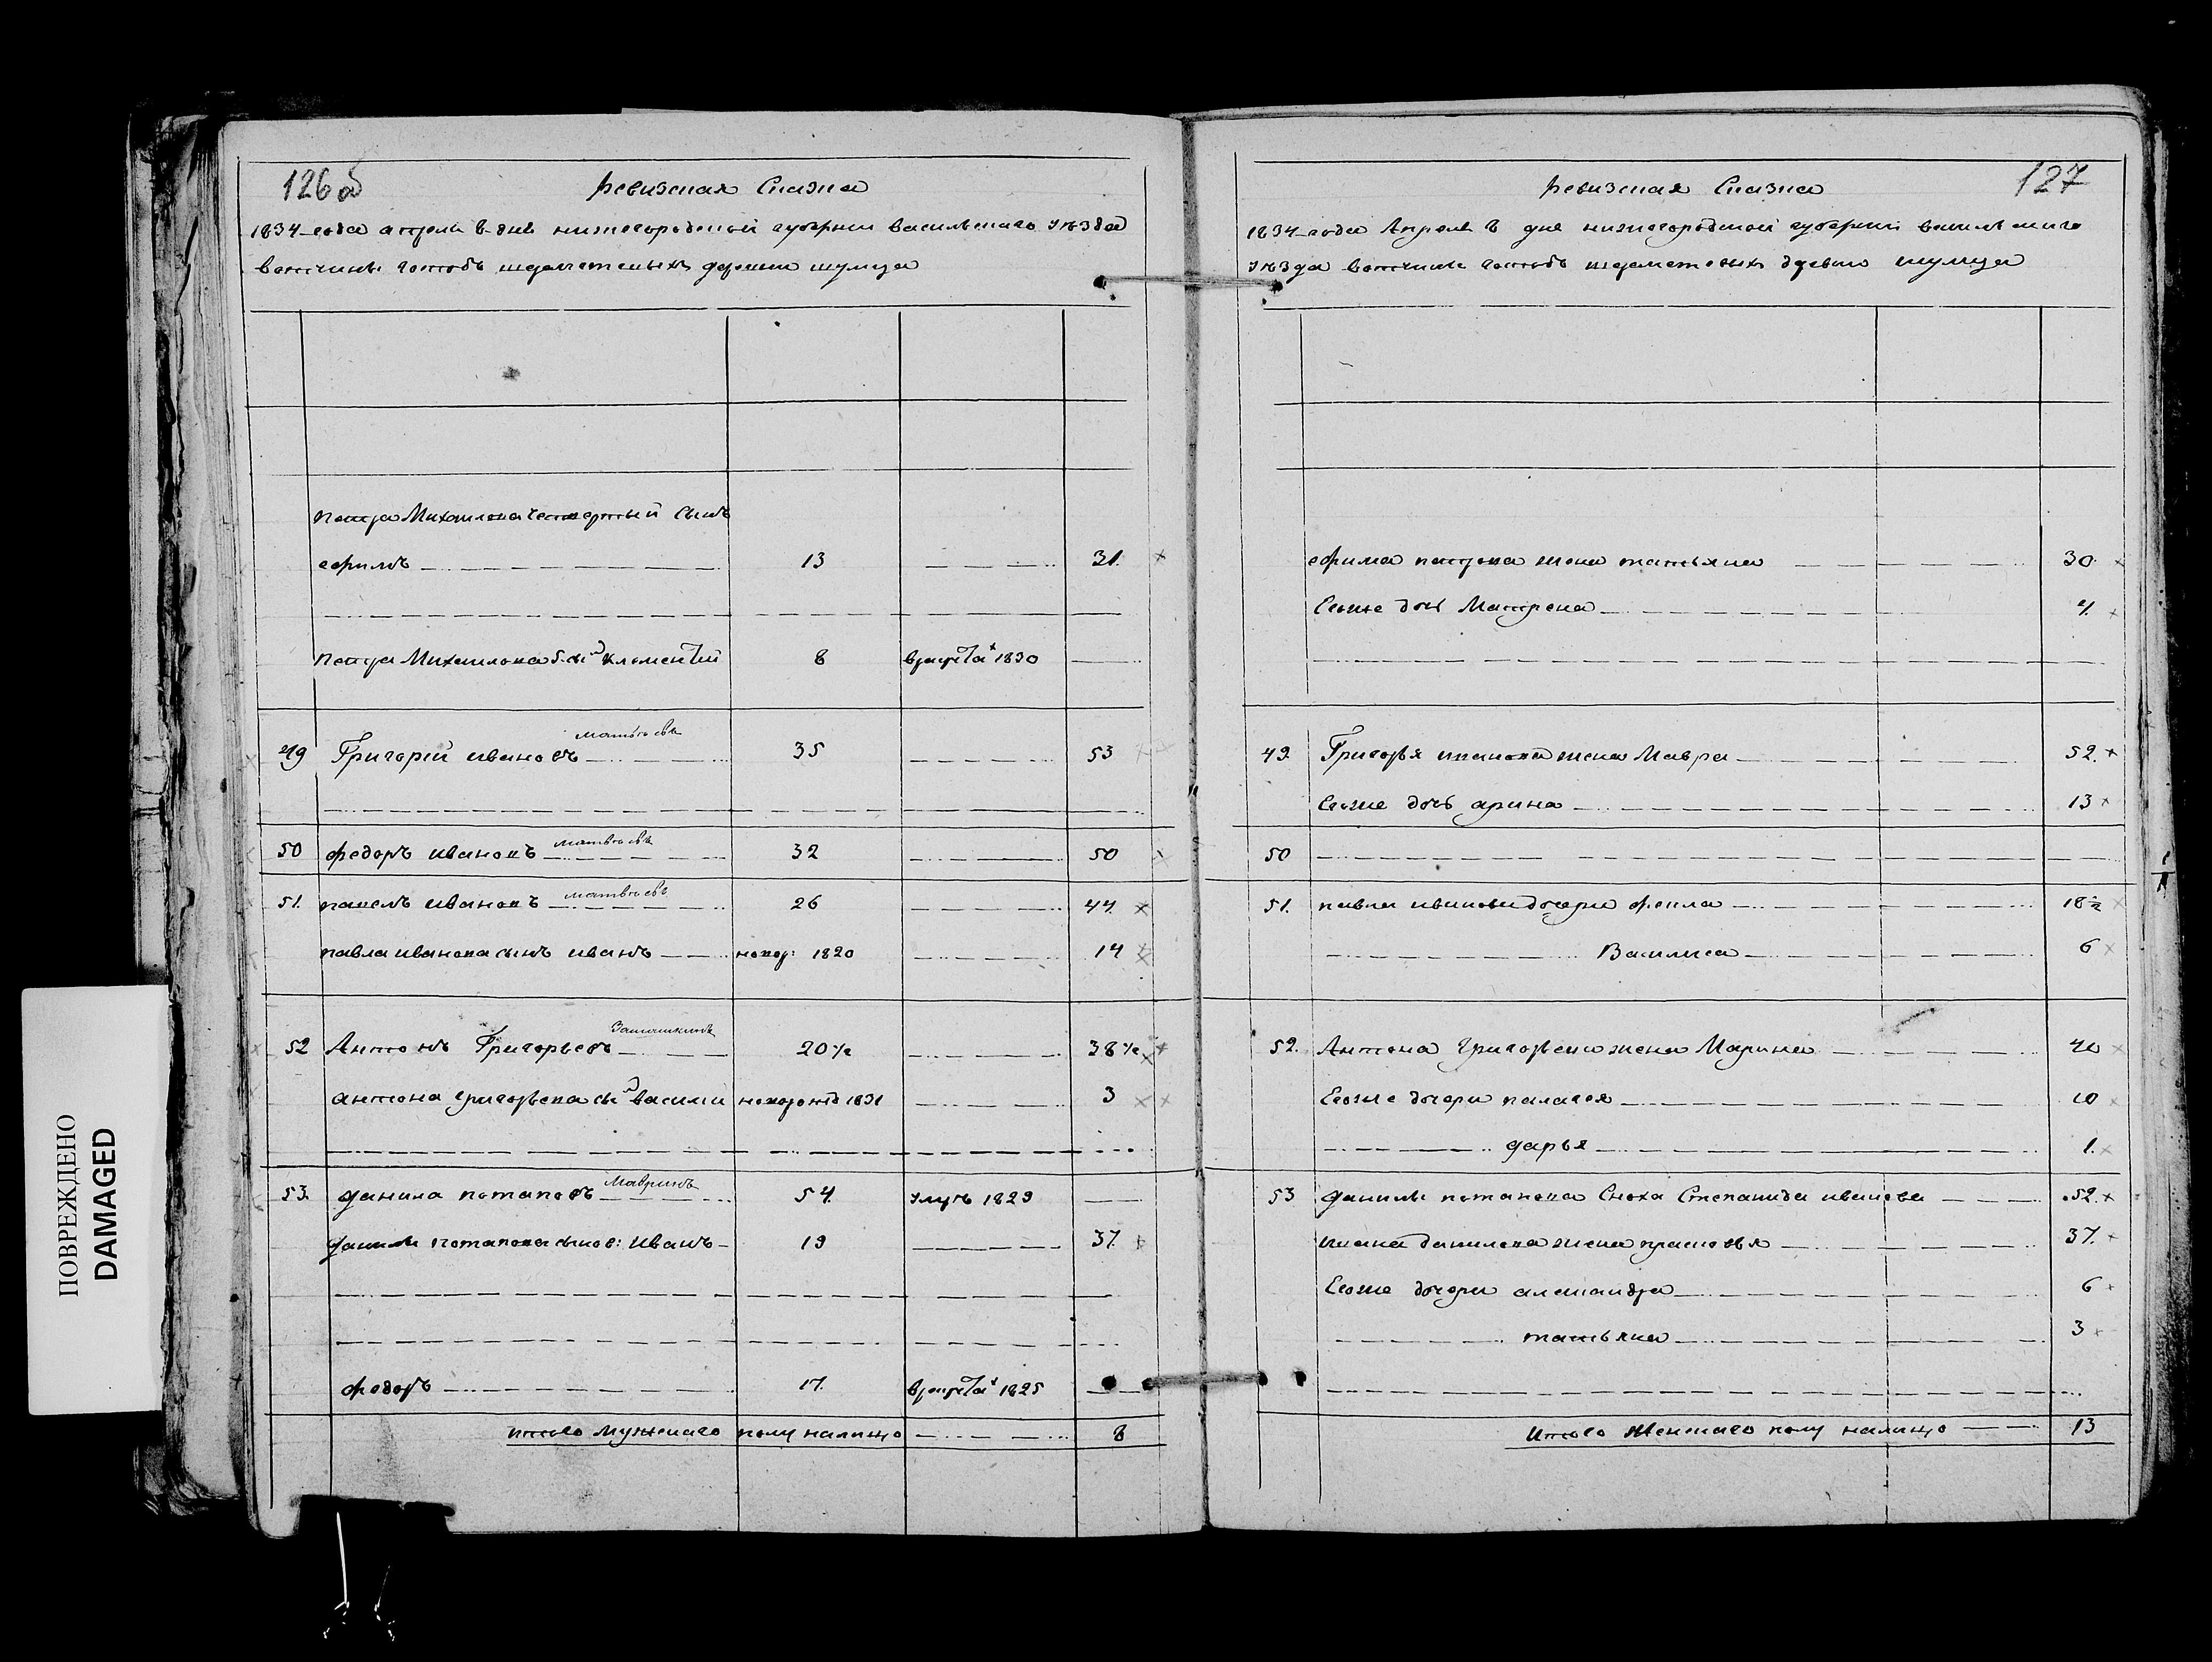 ПОВРЕЖДЕНО
DAMAGED
126 об
ревизская Сказка
1834 года апреля в дня нижегородской губернии васильскаго уѣзда
вотчины господъ шереметевыхъ деревни шумца
Петра Михаилова четвертый сынъ
ефимъ 13 31.
Петра Михаилова 5. сынъ климентий 8 врекрута 1830
49 Григорий ивановъ матвѣевъ 35 53
50 федоръ ивановъ матвѣевъ 32 50
51. павелъ ивановъ матвѣевъ 26 44.
павла иванова сынъ иванъ новор: 1820 14
52 Антонъ Григорьевъ 20½ 38½
антона григорьева сынъ василий новорожд 1831 3
53. данила потаповъ Мавринъ 54. умръ 1829
данилы потапова сынов: Иванъ 19 37.
федоръ 17. врекрута 1825
итого мужскаго полу налицо 8
127
ревизская Сказка
1834 года Апреля в дня нижегородской губернии васильскаго
уѣзда вотчины господъ шереметевыхъ деревни шумца
ефима петрова жена татьяна 30.
Егоже дочь Матрена 4.
49. Григорья иванова жена Мавра 52.
Егоже дочь арина 13
50
51. павла иванова дочери фекла 18½
Василиса 6
52. Антона григорьева жена Марина 40
Егоже дочери палагея 10
дарья 1.
53 данилы потапова Сноха Степанида иванова 52.
ивана данилова жена прасковья 37.
Егоже дочери александра 6
татьяна 3
Итого Женскаго полу налицо 13